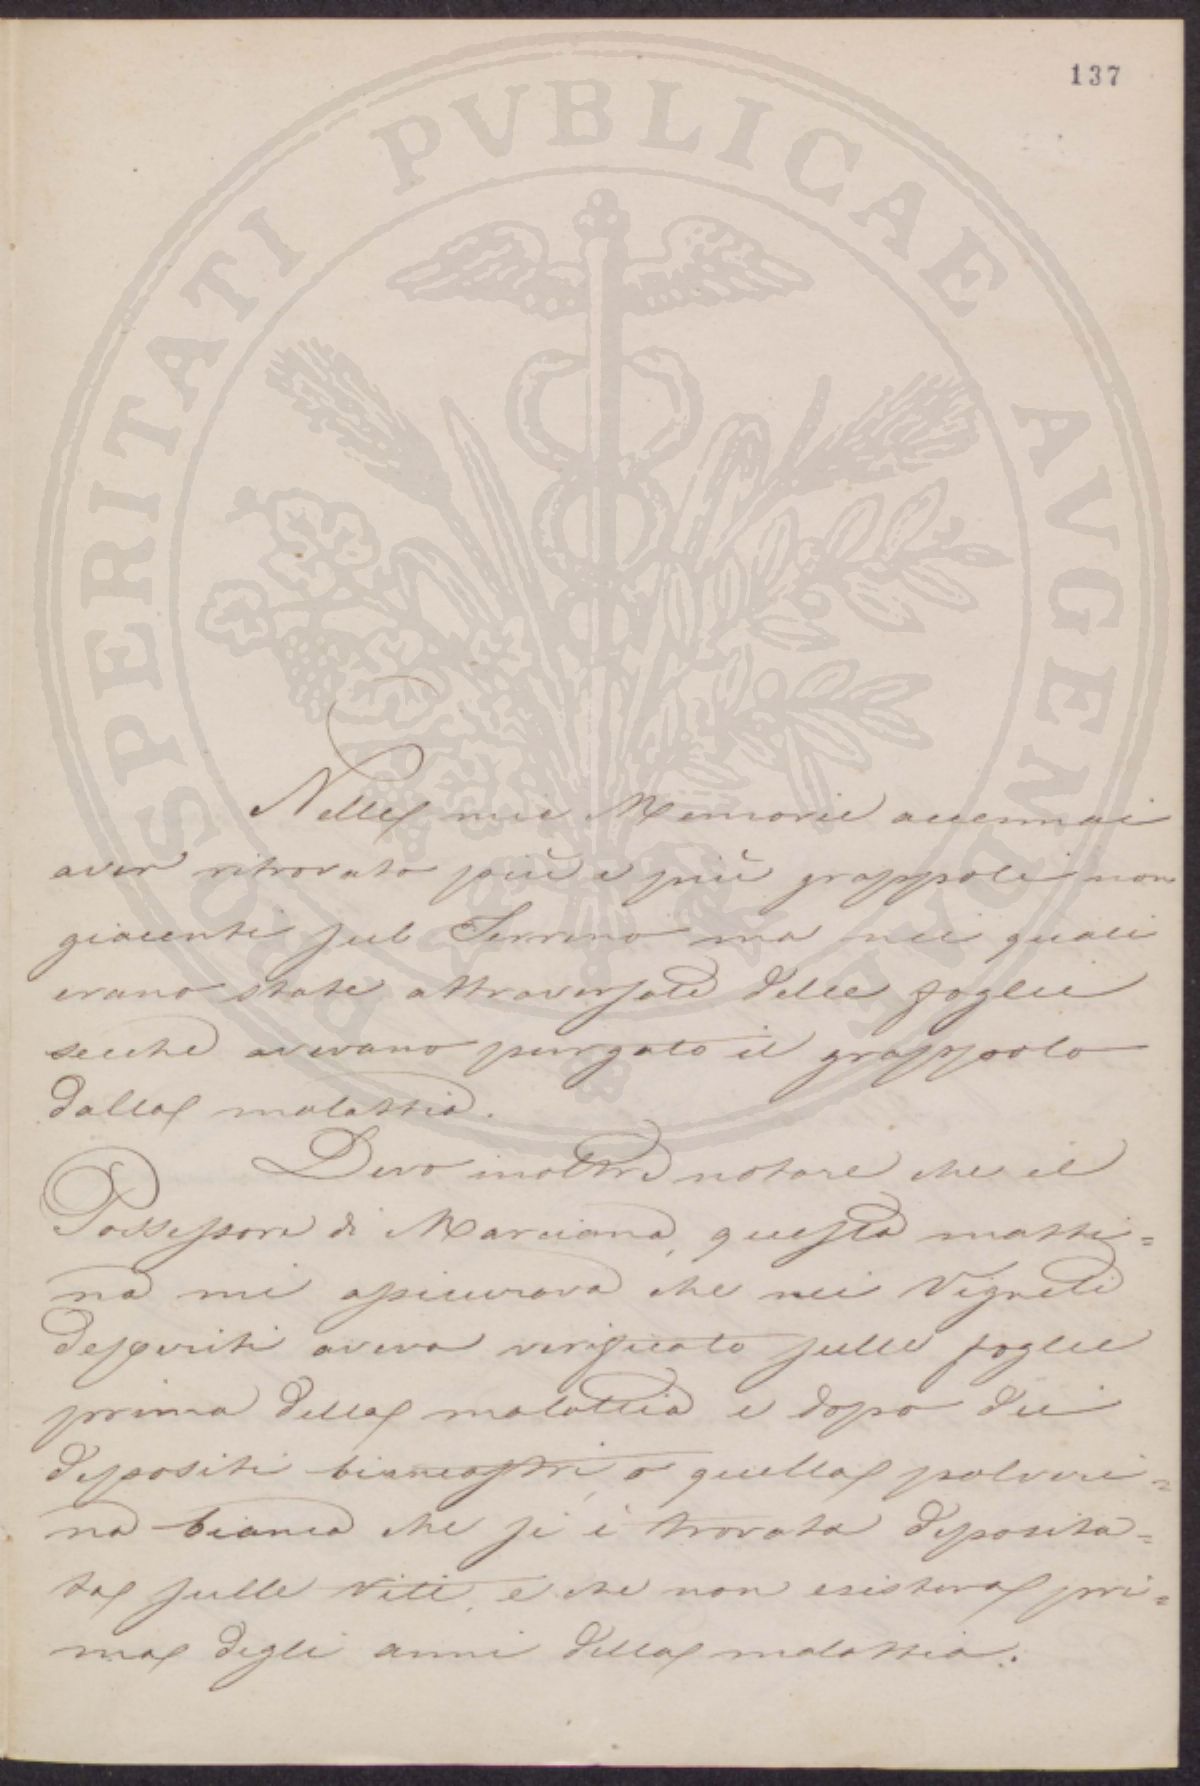 137
PROSPERITATI PVBLICAE AVGENDAE
Nella mie Memorie accennai
aver ritrovato più e più grappoli non
giacenti sul Terreno ma nei quali
erano state attraversate delle foglie
secche avevano purgato il grappolo
dalla malattia.
Devo inoltre notare che il
Possessore di Marciana, questa matti=
na mi assicurava che nei Vigneti
deperiti aveva verificato sulle foglie
prima della malattia e dopo dei
depositi biancastri, o quella polveri=
na bianca che si è trovata deposita=
ta sulle viti, e che non esisteva pri=
ma degli anni della malattia.